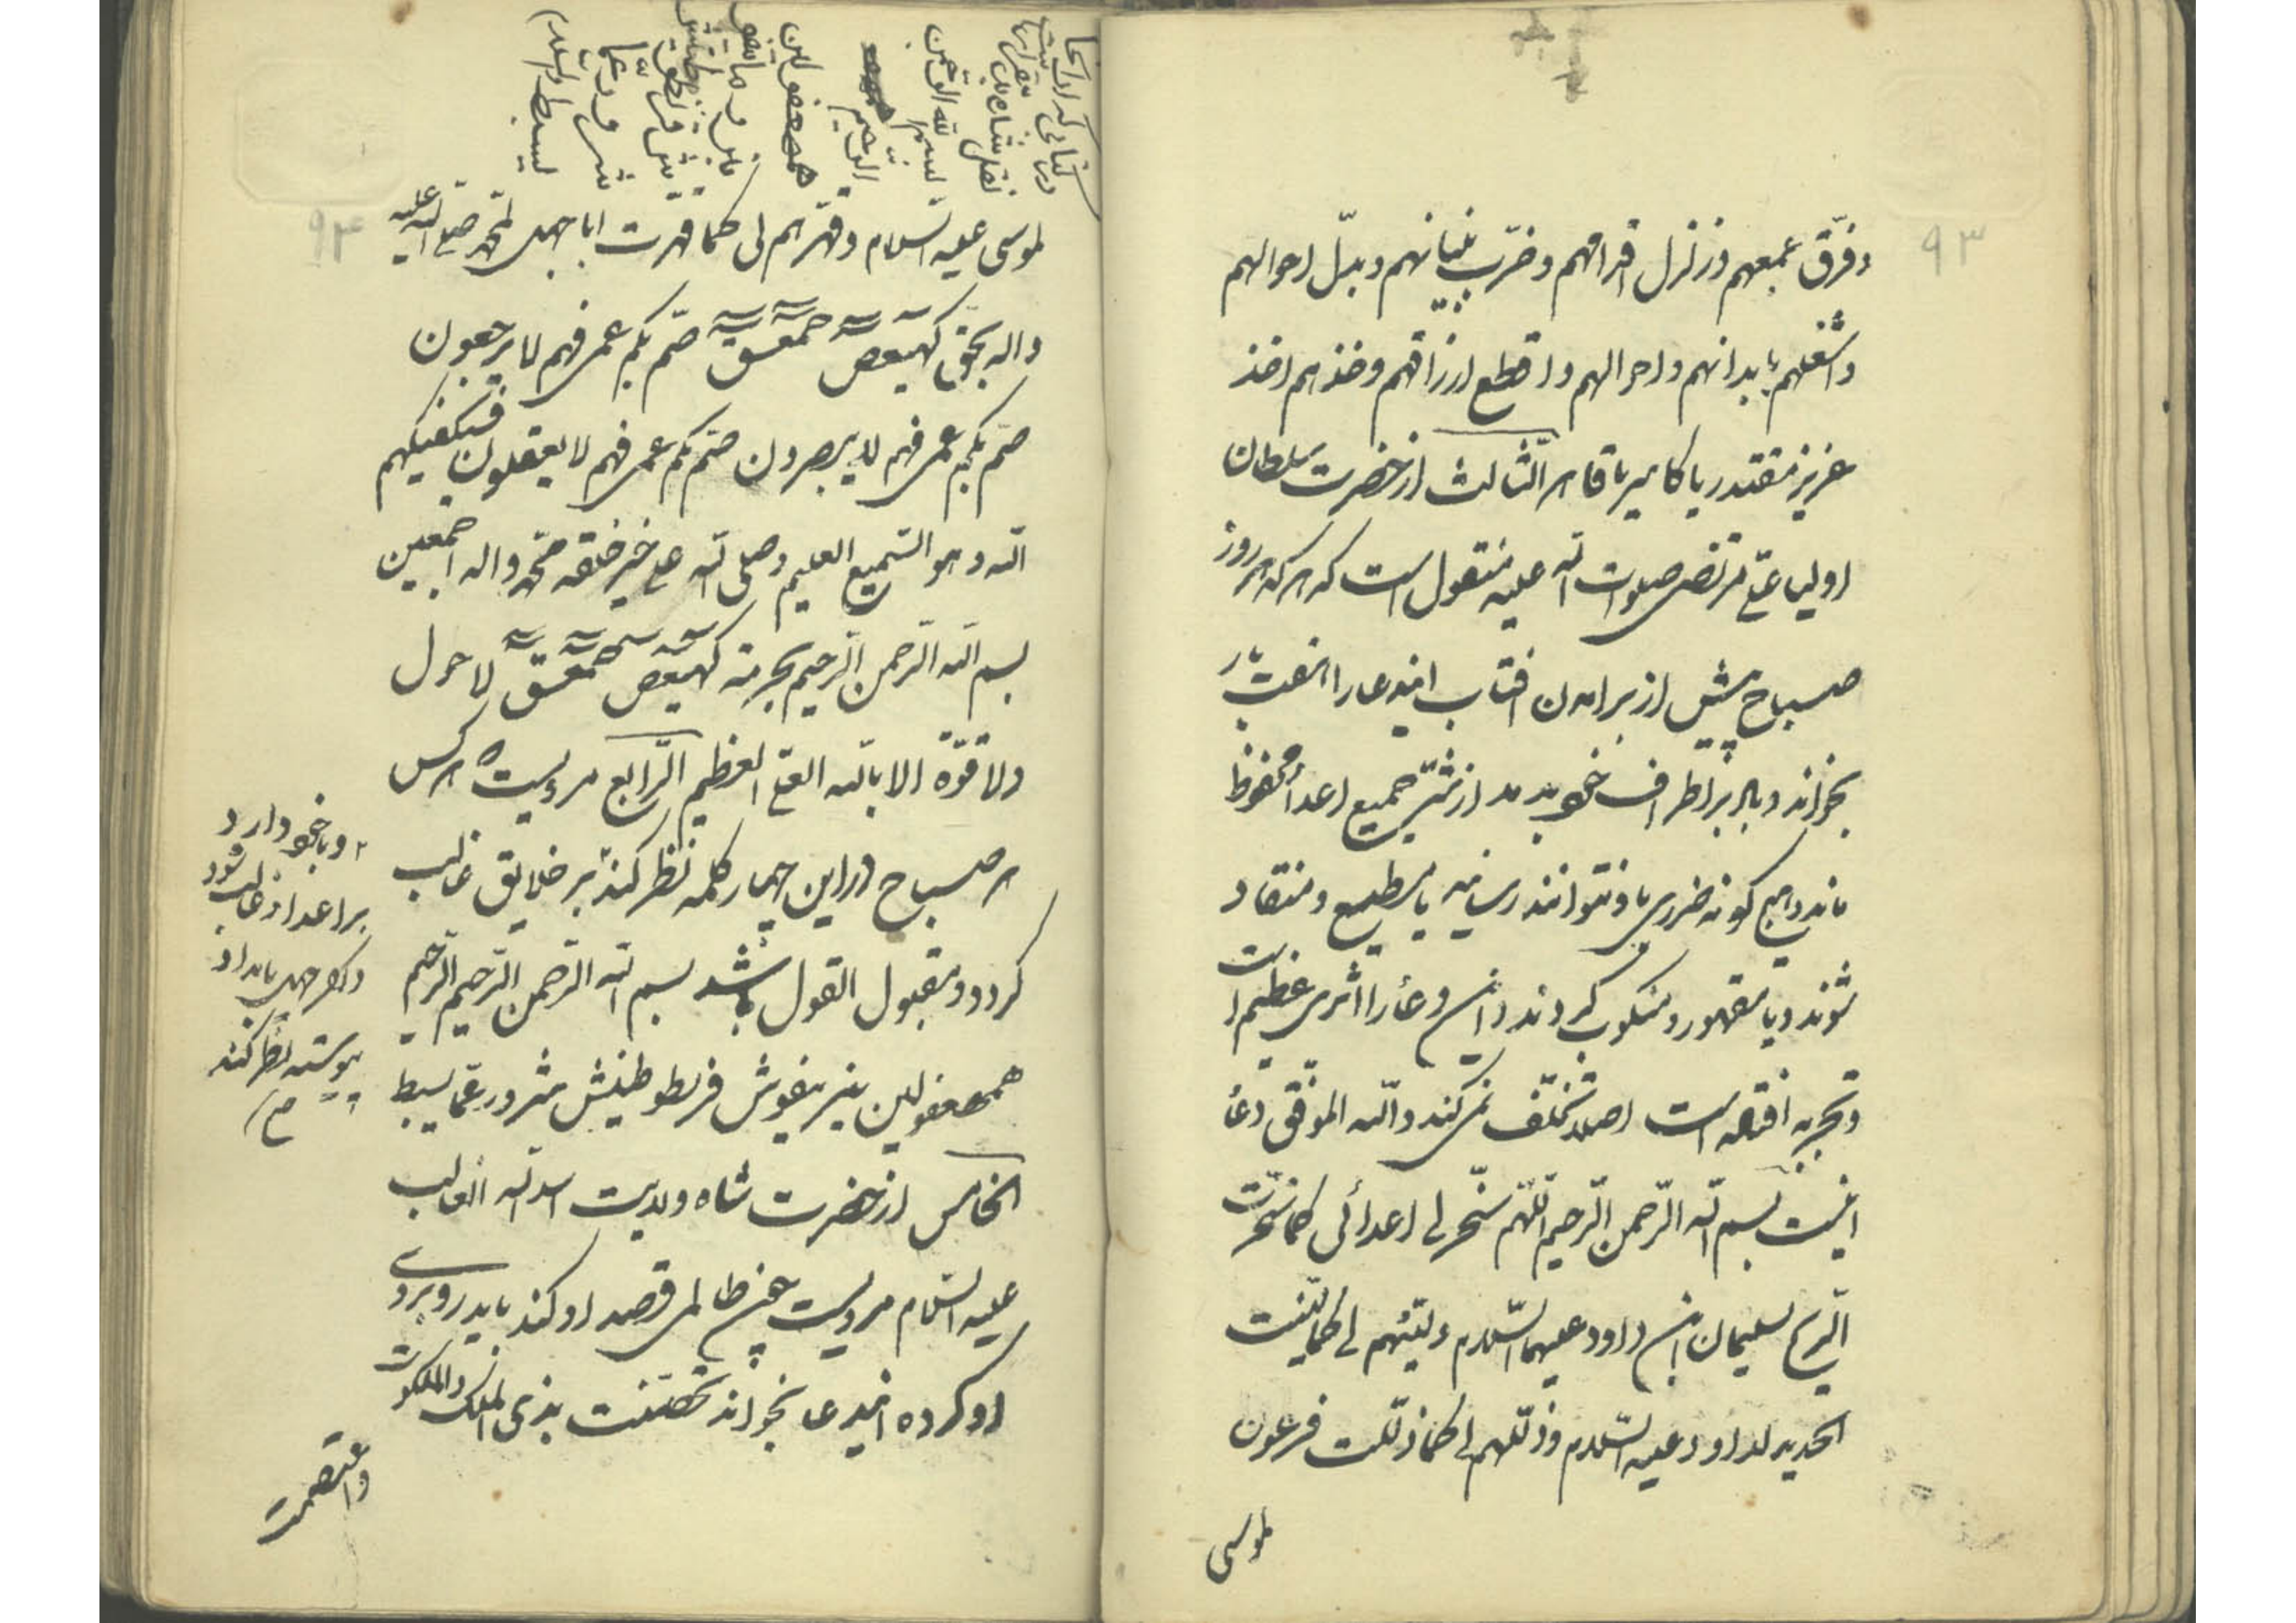 ۹۳
وفرّق جمعهم وزلزل اقدامهم وخرّب بنیانهم وبدّل احوالهم
واشغلهم بابدانهم واحوالهم واقطع ارزاقهم وخذهم اخذ
عزیز مقتدر یا قاهر الثالث از حضرت سلطان
اولیا علی مرتضی صلوات الله علیه منقول است که هر که هر روز
صباح پیش از برامدن افتاب این دعا را هفت بار
بخواند و بر اطراف خود بدمد از شر جمیع اعدا محفوظ
ماند و هیچ کونه ضرری باو نتوانند رسانید یا مطیع و منقاد
شوند و یا مقهور و منکوب کردند و این دعا را اثری عظیم است
و تجربه افتاده است اصلا تخلف نمی کند والله الموفق دعا
اینست بسم الله الرحمن الرحیم اللهم سخر لی اعدائی کما سخرت
الریح لسلیمان ابن داود علیهما السلام ولینهم لی کما لینت
الحدید لداود علیه السلام وذللهم لی کما ذللت فرعون
لموسی
۹۴
لموسی علیه السلام وقهرهم لی کما قهرت ابا جهل لمحمد صلی الله علیه
واله بحق کهیعص حمعسق صم بکم عمی فهم لا یرجعون
صم بکم عمی فهم لا یبصرون صم بکم عمی فهم لا یعقلون فسیکفیکهم
الله وهو السمیع العلیم وصلی الله علی خیر خلقه محمد واله اجمعین
بسم الله الرحمن الرحیم بحرمة کهیعص حمعسق لا حول
ولا قوة الا بالله العلی العظیم الرابع مرویست هر کس
هر صباح در این چهار کلمه نظر کند بر خلایق غالب
کردد و مقبول القول باشد بسم الله الرحمن الرحیم
الخامس از حضرت شاه ولایت اسد الله الغالب
علیه السلام مرویست چون ظالمی قصد او کند باید رو بروی
او کرده این دعا بخواند تحصنت بذی الملک والملکوت
واعتصمت
و با خود دارد
بر اعدا غالب شود
پیوسته نظر کند
بسم الله الرحمن
الرحیم